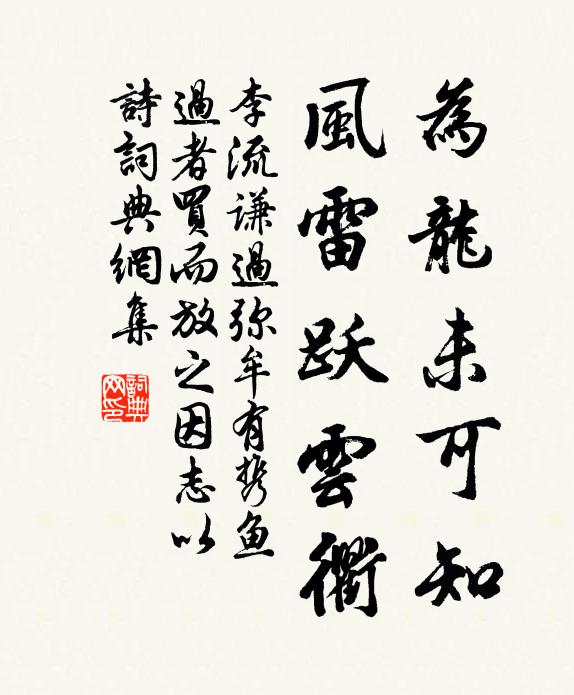 為龍未可知
風雷跃雲衢
李流谦過弥牟有携鱼
過者買而放之因志以
詩詞典網集
詞典网印